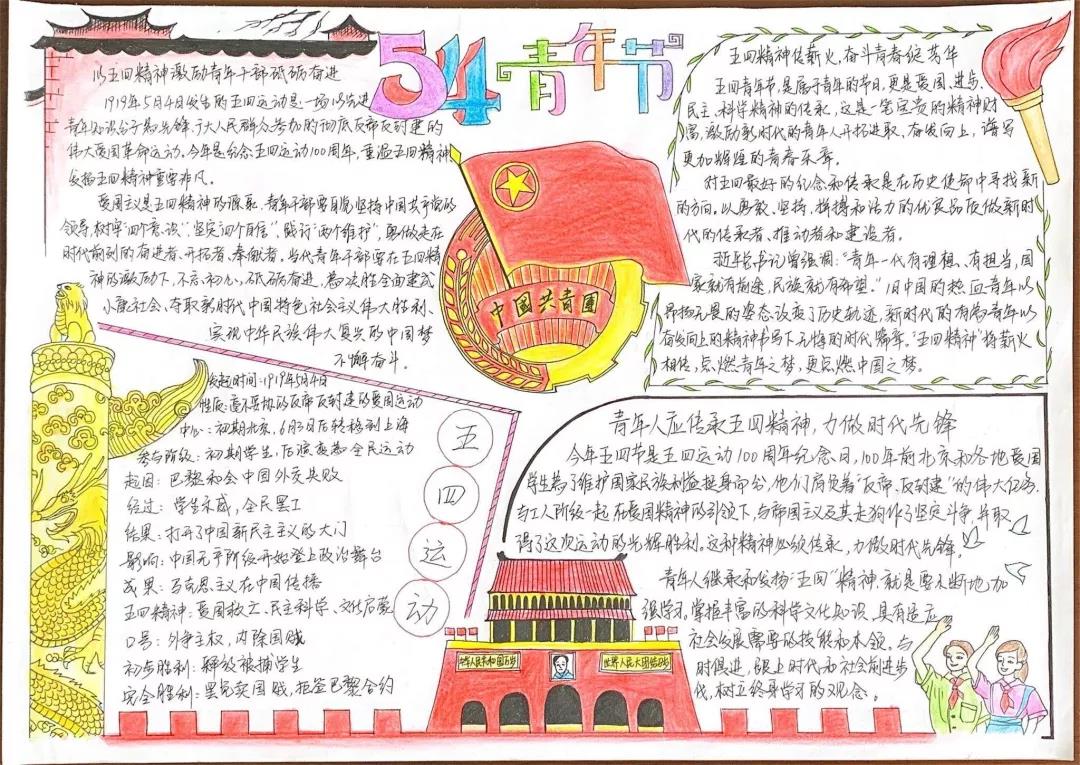 54青年节
以五四精神激励青年干部砥砺奋进
1919年5月4日发生的五四运动是一场以先进
青年知识分子为先锋、广大人民群众参加的彻底反帝反封建的
伟大爱国革命运动。今年是纪念五四运动100周年,重温五四精神
发扬五四精神重要非凡。
爱国主义是五四精神的源泉。青年干部要自觉坚持中国共产党的
领导,树牢"四个意识"、坚定"四个自信"、践行"两个维护",勇做走在
时代前列的奋进者、开拓者、奉献者。当代青年干部要在五四精
神的激励下,不忘初心、砥砺奋进,为决胜全面建成
小康社会、夺取新时代中国特色社会主义伟大胜利、
实现中华民族伟大复兴的中国梦
不懈奋斗。
五四精神传薪火,奋斗青春绽芳华
五四青年节,是属于青年的节日,更是爱国、进步、
民主、科学精神的传承。这是一笔宝贵的精神财
富,激励新时代的青年人开拓进取、奋发向上,谱写
更加辉煌的青春乐章。
对五四最好的纪念和传承是在历史使命中寻找新
的方向。以勇敢、坚持、拼搏和活力的优良品质做新时
代的传承者、推动者和建设者。
总书记曾强调:"青年一代有理想、有担当,国
家就有前途,民族就有希望。"旧中国的热血青年以
昂扬无畏的姿态改变了历史轨迹,新时代的有为青年以
奋发向上的精神书写下无悔的时代篇章。"五四精神"将薪火
相传,点燃青年之梦,更点燃中国之梦。
中国共青团
发起时间:1919年5月4日
性质:毫不妥协的反帝反封建的爱国运动
中心:初期北京,6月3日后转移到上海
参与阶级:初期学生,后演变为全民运动
起因:巴黎和会中国外交失败
经过:学生示威,全民罢工
结果:打开了中国新民主主义的大门
影响:中国无产阶级开始登上政治舞台
成果:马克思主义在中国传播
五四精神:爱国救亡、民主科学、文化启蒙
口号:外争主权,内除国贼
初步胜利:释放被捕学生
完全胜利:罢免卖国贼,拒签巴黎合约
五
四
运
动
青年人应传承五四精神,力做时代先锋
今年五四节是五四运动100周年纪念日,100年前北京和各地爱国
学生为了维护国家民族利益挺身而出,他们肩负着"反帝、反封建"的伟大任务,
与工人阶级一起,在爱国精神的引领下,与帝国主义及其走狗作了坚定斗争,并取
得了这次运动的光辉胜利。这种精神必须传承,力做时代先锋。
青年人继承和发扬"五四"精神,就是要不断地加
强学习,掌握丰富的科学文化知识,具有适应
社会发展需要的技能和本领。与
时俱进,跟上时代和社会前进步
伐,树立终身学习的观念。
中华人民共和国万岁
世界人民大团结万岁